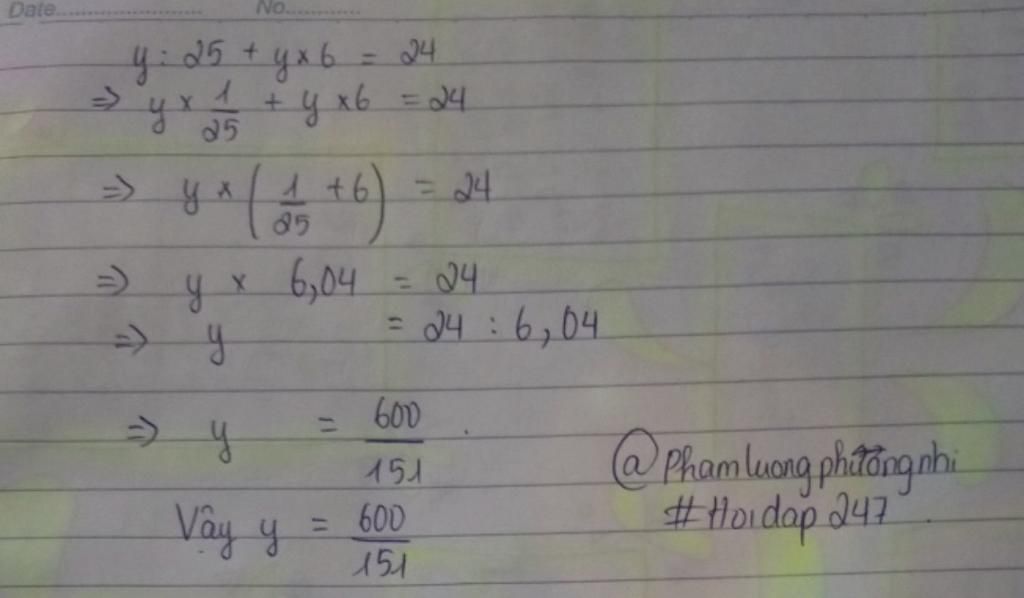 Date........................ No.............
y : 25 + y × 6 = 24
=> y × 1/25 + y × 6 = 24
=> y × (1/25 + 6) = 24
=> y × 6,04 = 24
=> y = 24 : 6,04
=> y = 600/151 .
Vậy y = 600/151
@phamluongphuongnhi
#Hoidap247 .